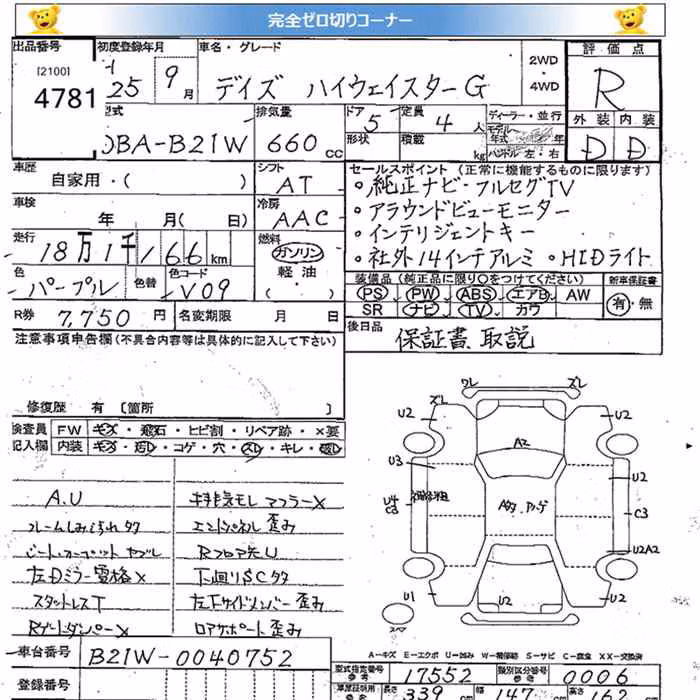 完全ゼロ切りコーナー
出品番号 初度登録年月 車名・グレード 2WD 評価点
[2100] 25 9月 デイズ ハイウェイスターG ・4WD R
4781
型式 排気量 ドア 定員 ディーラー・並行 外装 内装
DBA-B21W 660cc 5 4人 モデル年式 年 D D
形状 積載 kg ハンドル 左・右
車歴 シフト セールスポイント (正常に機能するものに限ります)
自家用・( ) AT 。純正ナビ・フルセグTV
車検 冷房 。アラウンドビューモニター
年 月(日) AAC 。インテリジェントキー
走行 燃料 。社外14インチアルミ 。HIDライト
18万1千166km ガソリン
軽油
・( )
色 色替 色コード 装備品(純正品に限り○をつけてください) 新車保証書
パープル V09 PS PW ABS エアB AW 有・無
SR ナビ TV カワ
R券 7,750円 名変期限 月 日 後日品
保証書、取説
注意事項申告欄(不具合内容等は具体的に記入して下さい)
修復歴 有 〔箇所 〕
検査員 FW キズ・飛石・ヒビ割・リペア跡・×要
記入欄 内装 キズ・汚レ・コゲ・穴・スレ・キレ・破レ
A.U 排気モレ マフラーX
フレームしみ汚れ タタ エンドパネル 歪み
Rフロア先U
左Dミラー 下廻りSCタタ
スタットレスT 左下サイドメンバー 歪み
Rゲートダンパー X ロアサポート 歪み
ワレ ズレ
ズレ
U2 U2
A2
U3 U2
U4 C3 C3
U2A2
U1 U2 U1
スペア
A-キズ E-エクボ U-凹み W-補修跡 S-サビ C-腐食 XX-交換済
車台番号 B21W-0040752 型式指定番号 参考 17552 類別区分番号 参考 0006
登録番号 長さ 339 cm 幅 147 高さ 162